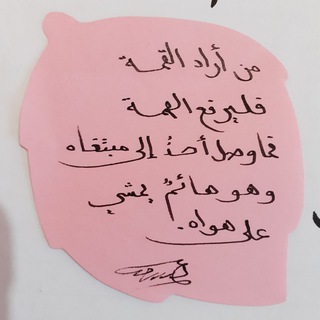 من أراد القمة
فليرفع الهمة
فما وصل أحدُ إلى مبتغاه
وهو هائمُ يمشي
على هواه.